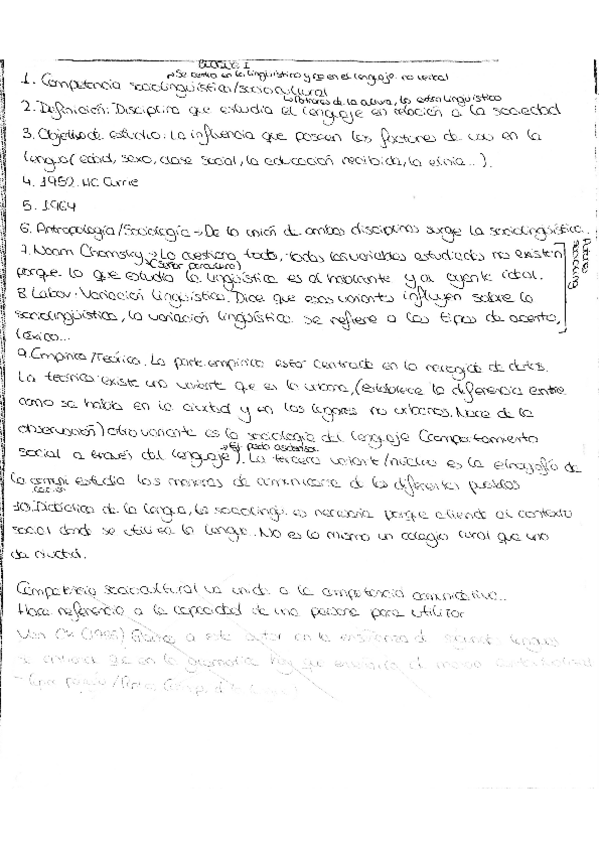 BLOQUE I
→ Se centra en lo lingüístico y no en el lenguaje no verbal
1. Competencia sociolingüística/sociocultural
↳ factores de la cultura, lo extralingüístico
2. Definición: Disciplina que estudia el lenguaje en relación a la sociedad
3. Objeto de estudio: la influencia que poseen los factores de uso en la
lengua (edad, sexo, clase social, la educación recibida, la etnia...).
4. 1952. HC Currie
5. 1964
6. Antropología/Sociología → De la unión de ambas disciplinas surge la sociolingüística.
7. Noam Chomsky → Lo cuestiona todo, todas las variables estudiadas no existen
porque lo que estudia la lingüística es al hablante y al oyente ideal.
8. Labov: Variación lingüística. Dice que esas variantes influyen sobre la
sociolingüística, la variación lingüística se refiere a los tipos de acento,
léxico...
9. Empírica/Teórica. La parte empírica está centrada en la recogida de datos.
La teórica existe una variante que es la urbana, (establece la diferencia entre
como se habla en la ciudad y en los lugares no urbanos. Nace de la
observación) otra variante es la sociología del lenguaje (comportamiento
social a través del lenguaje). La tercera variante/núcleo es la etnografía de
la comunicación estudia las maneras de comunicarse de los diferentes pueblos
10. Didáctica de la lengua, la socioling. es necesaria porque atiende al contexto
social donde se utiliza la lengua. No es lo mismo un colegio rural que uno
de ciudad.
Competencia sociocultural va unida a la competencia comunicativa..
Hace referencia a la capacidad de una persona para utilizar